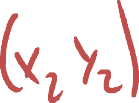 (x₂ y₂)